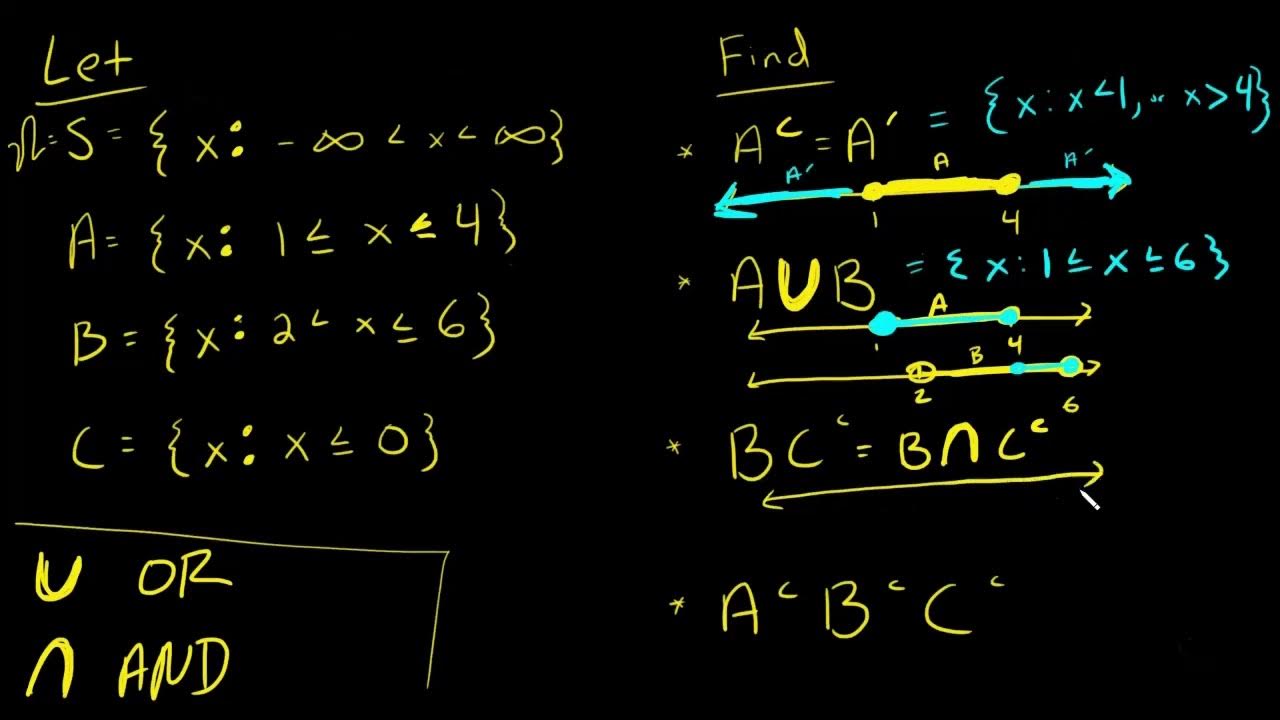 Let
Ω = S = { x : - ∞ < x < ∞ }
A = { x : 1 ≤ x ≤ 4 }
B = { x : 2 < x ≤ 6 }
C = { x : x ≤ 0 }
∪ OR
∩ AND
Find
* Aᶜ = A′ = { x : x < 1, or x > 4 }
A′ A A′
1 4
* A ∪ B = { x : 1 ≤ x ≤ 6 }
A
1 4
B
2 6
* B Cᶜ = B ∩ Cᶜ
* Aᶜ Bᶜ Cᶜ